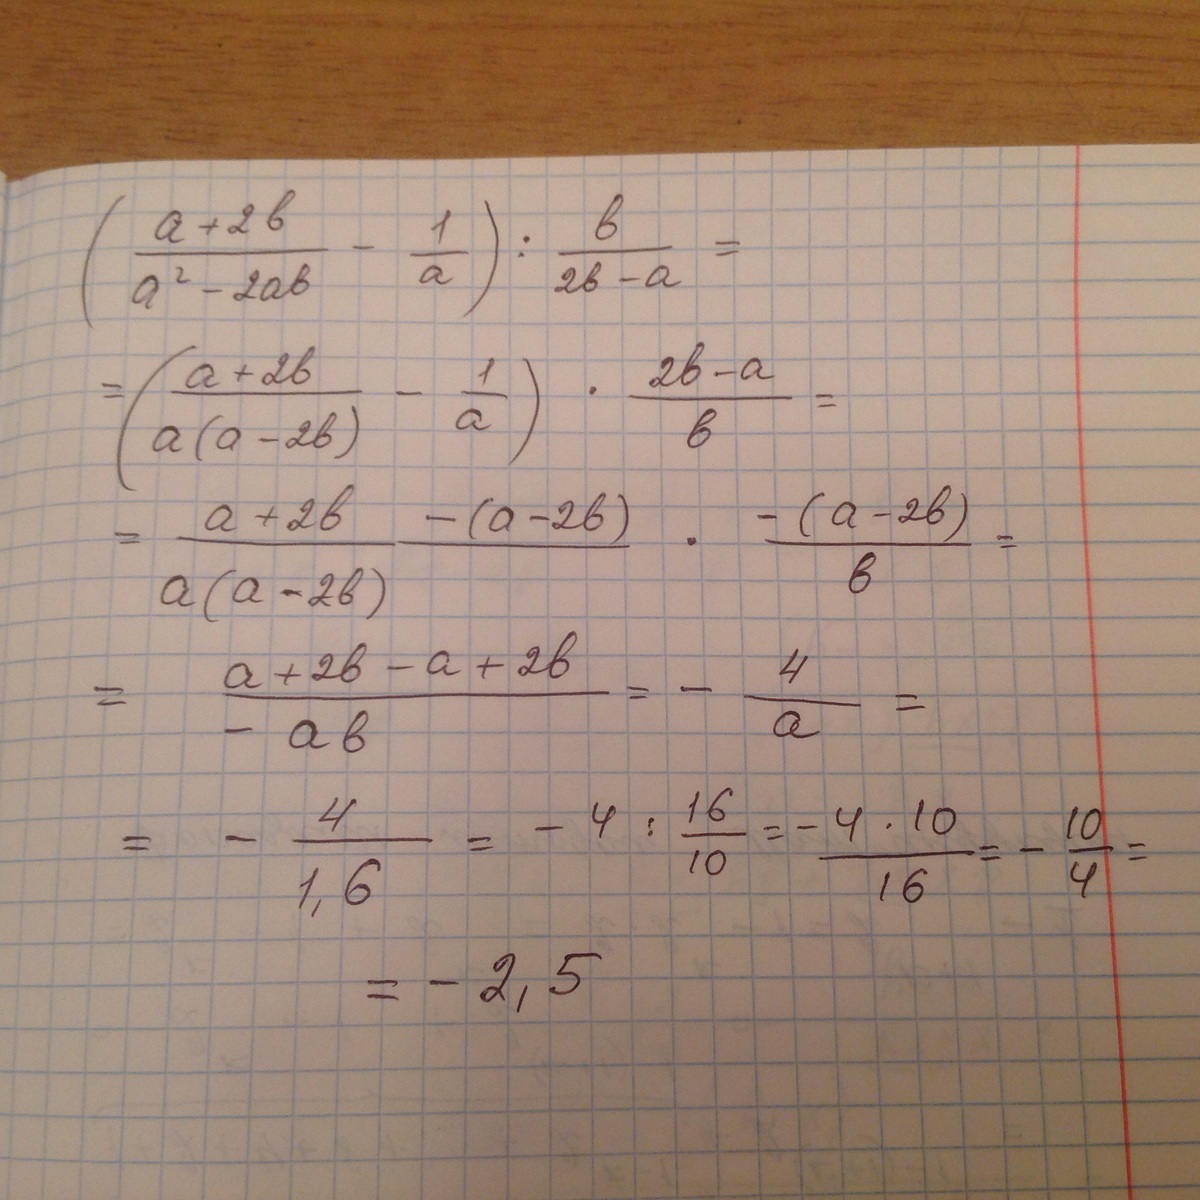 ( (a+2b)/(a² - 2ab) - 1/a ) : b/(2b-a) =
= ( (a+2b)/(a(a-2b)) - 1/a ) · (2b-a)/b =
= (a+2b -(a-2b))/(a(a-2b)) · (-(a-2b))/b =
= (a+2b-a+2b)/(-ab) = - 4/a =
= - 4/1,6 = -4 : 16/10 = -(4·10)/16 = - 10/4 =
= - 2,5